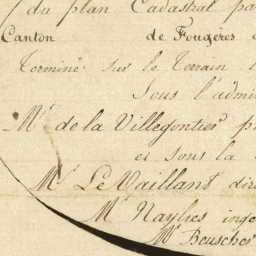 du plan Cadastral pa
Canton de Fougères
Terminé sur le Terrain
Sous l'admi
Mr. de la Villegontier p
et sous la
Mr. Le Vaillant dir
Mr. Naylies inge
Mr. Beuscher